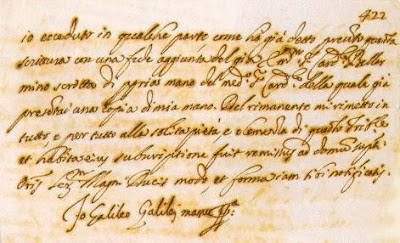 422
io ecceduto in qualche parte come ho già detto presento questa
scrittura con una fede aggiunta del già Emmo S. Card.l Bellar
mino scritta di propria mano del medo S. Card.e della quale già
presentai una copia di mia mano. Del rimanente mi rimetto in
tutto e per tutto alla solita pietà e clemenza di questo Trible.
et habita eius subscriptione fuit remissus ad domum supti
Oris Magni Ducis modo, et forma iam sibi notificatis.
Io Galileo Galilej manu ppa